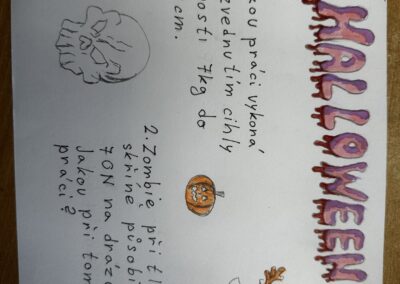 HALLOWEEN
kou práci vykoná
zvednutím cihly
osti 7kg do
cm.
2. Zombie při tl
skříně působí
70N na dráze
Jakou při tom
práci?